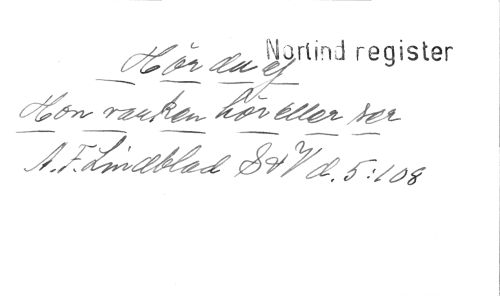 Norlind register
Hör du ej
Hon varken hör eller ser
A. F. Lindblad S & V d. 5:108